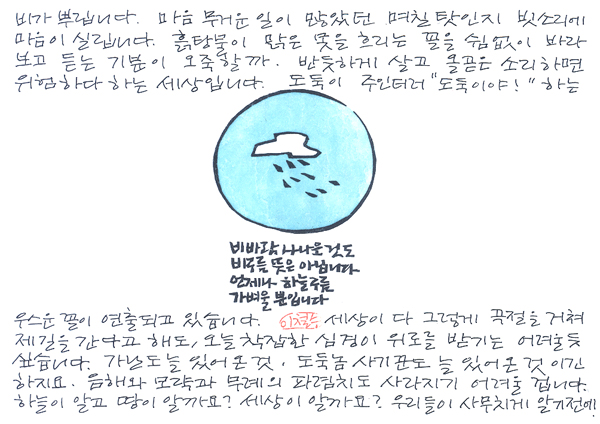 비가 뿌립니다. 마음 무거운 일이 많았던 며칠 탓인지 빗소리에
마음이 실립니다. 흙탕물이 맑은 못을 흐리는 꼴을 쉼없이 바라
보고 듣는 기분이 오죽할까. 반듯하게 살고 올곧은 소리하면
위험하다 하는 세상입니다. 도둑이 주인더러 "도둑이야!" 하는
비바람 사나운 것도
비구름 뜻은 아닙니다
언제나 하늘주름
가벼울 뿐입니다
우스운 꼴이 연출되고 있습니다. 이철수 세상이 다 그렇게 곡절을 거쳐
제길을 간다고 해도, 오늘 착잡한 심경이 위로를 받기는 어려울듯
싶습니다. 가널도 늘 있어온 것. 도둑놈 사기꾼도 늘 있어온 것이긴
하지요. 음해와 모략과 무례의 파렴치도 사라지기 어려울 겁니다.
하늘이 알고 땅이 알까요? 세상이 알까요? 우리들이 사무치게 알기전에!